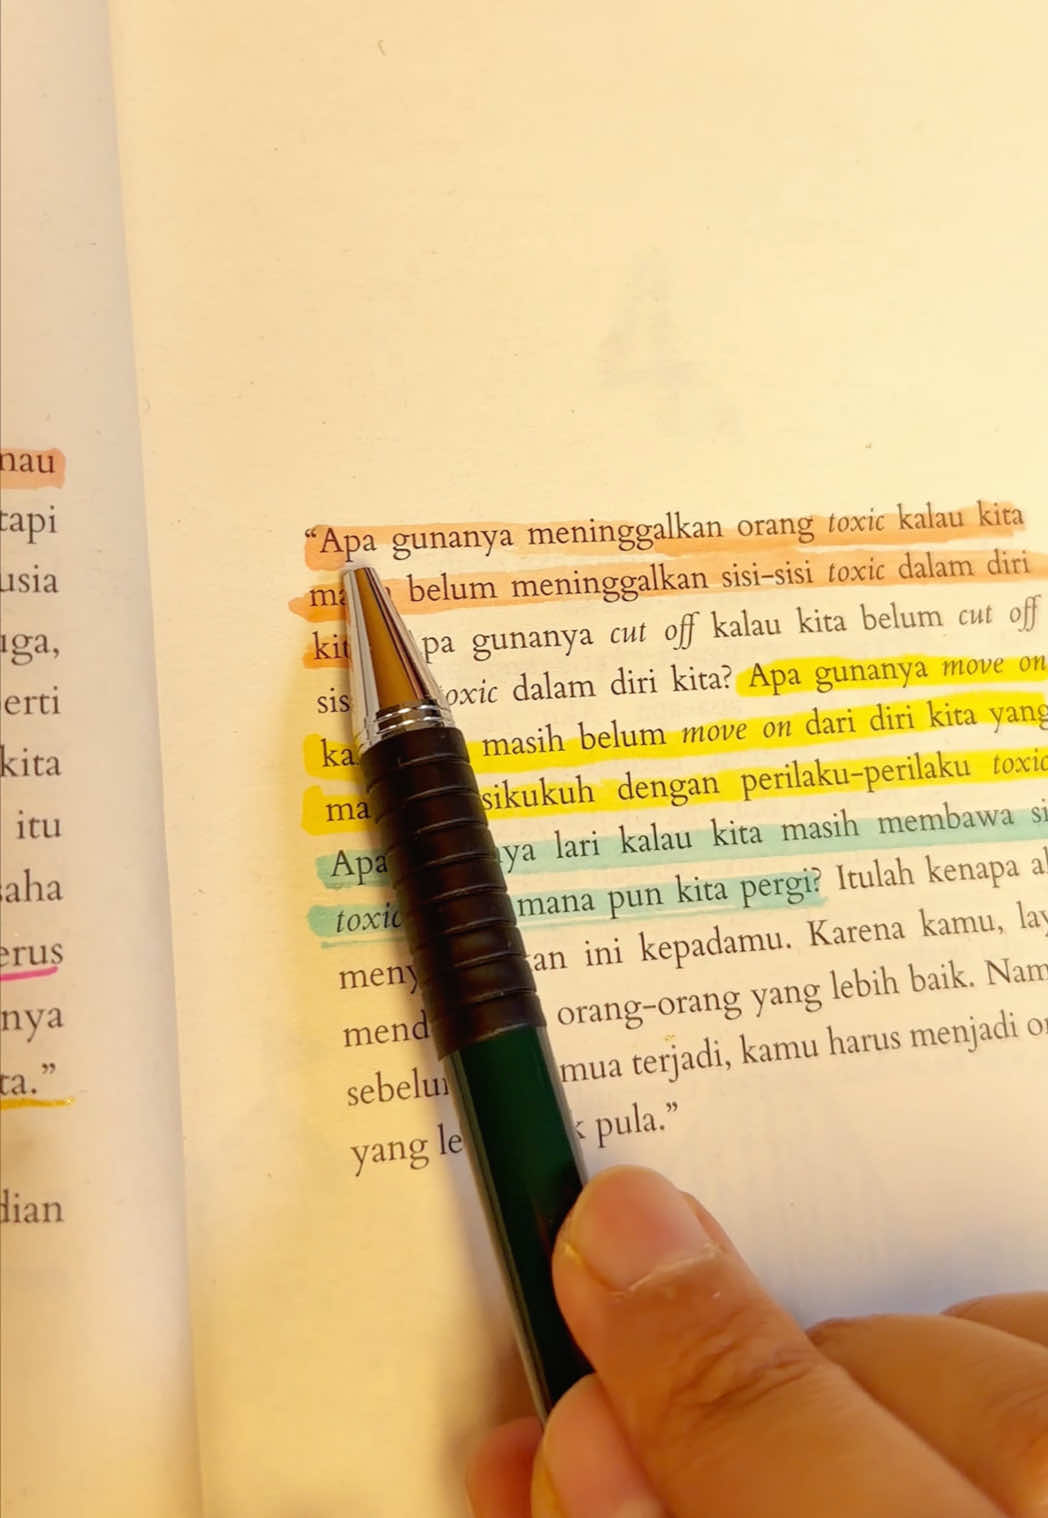 nau
tapi
usia
uga,
erti
kita
itu
saha
erus
nya
ta.”
dian
“Apa gunanya meninggalkan orang toxic kalau kita
belum meninggalkan sisi-sisi toxic dalam diri
gunanya cut off kalau kita belum cut off
dalam diri kita? Apa gunanya move on
masih belum move on dari diri kita yang
dengan perilaku-perilaku toxic
Apa lari kalau kita masih membawa
toxic mana pun kita pergi? Itulah kenapa
ini kepadamu. Karena kamu,
orang-orang yang lebih baik.
terjadi, kamu harus menjadi
yang pula.”